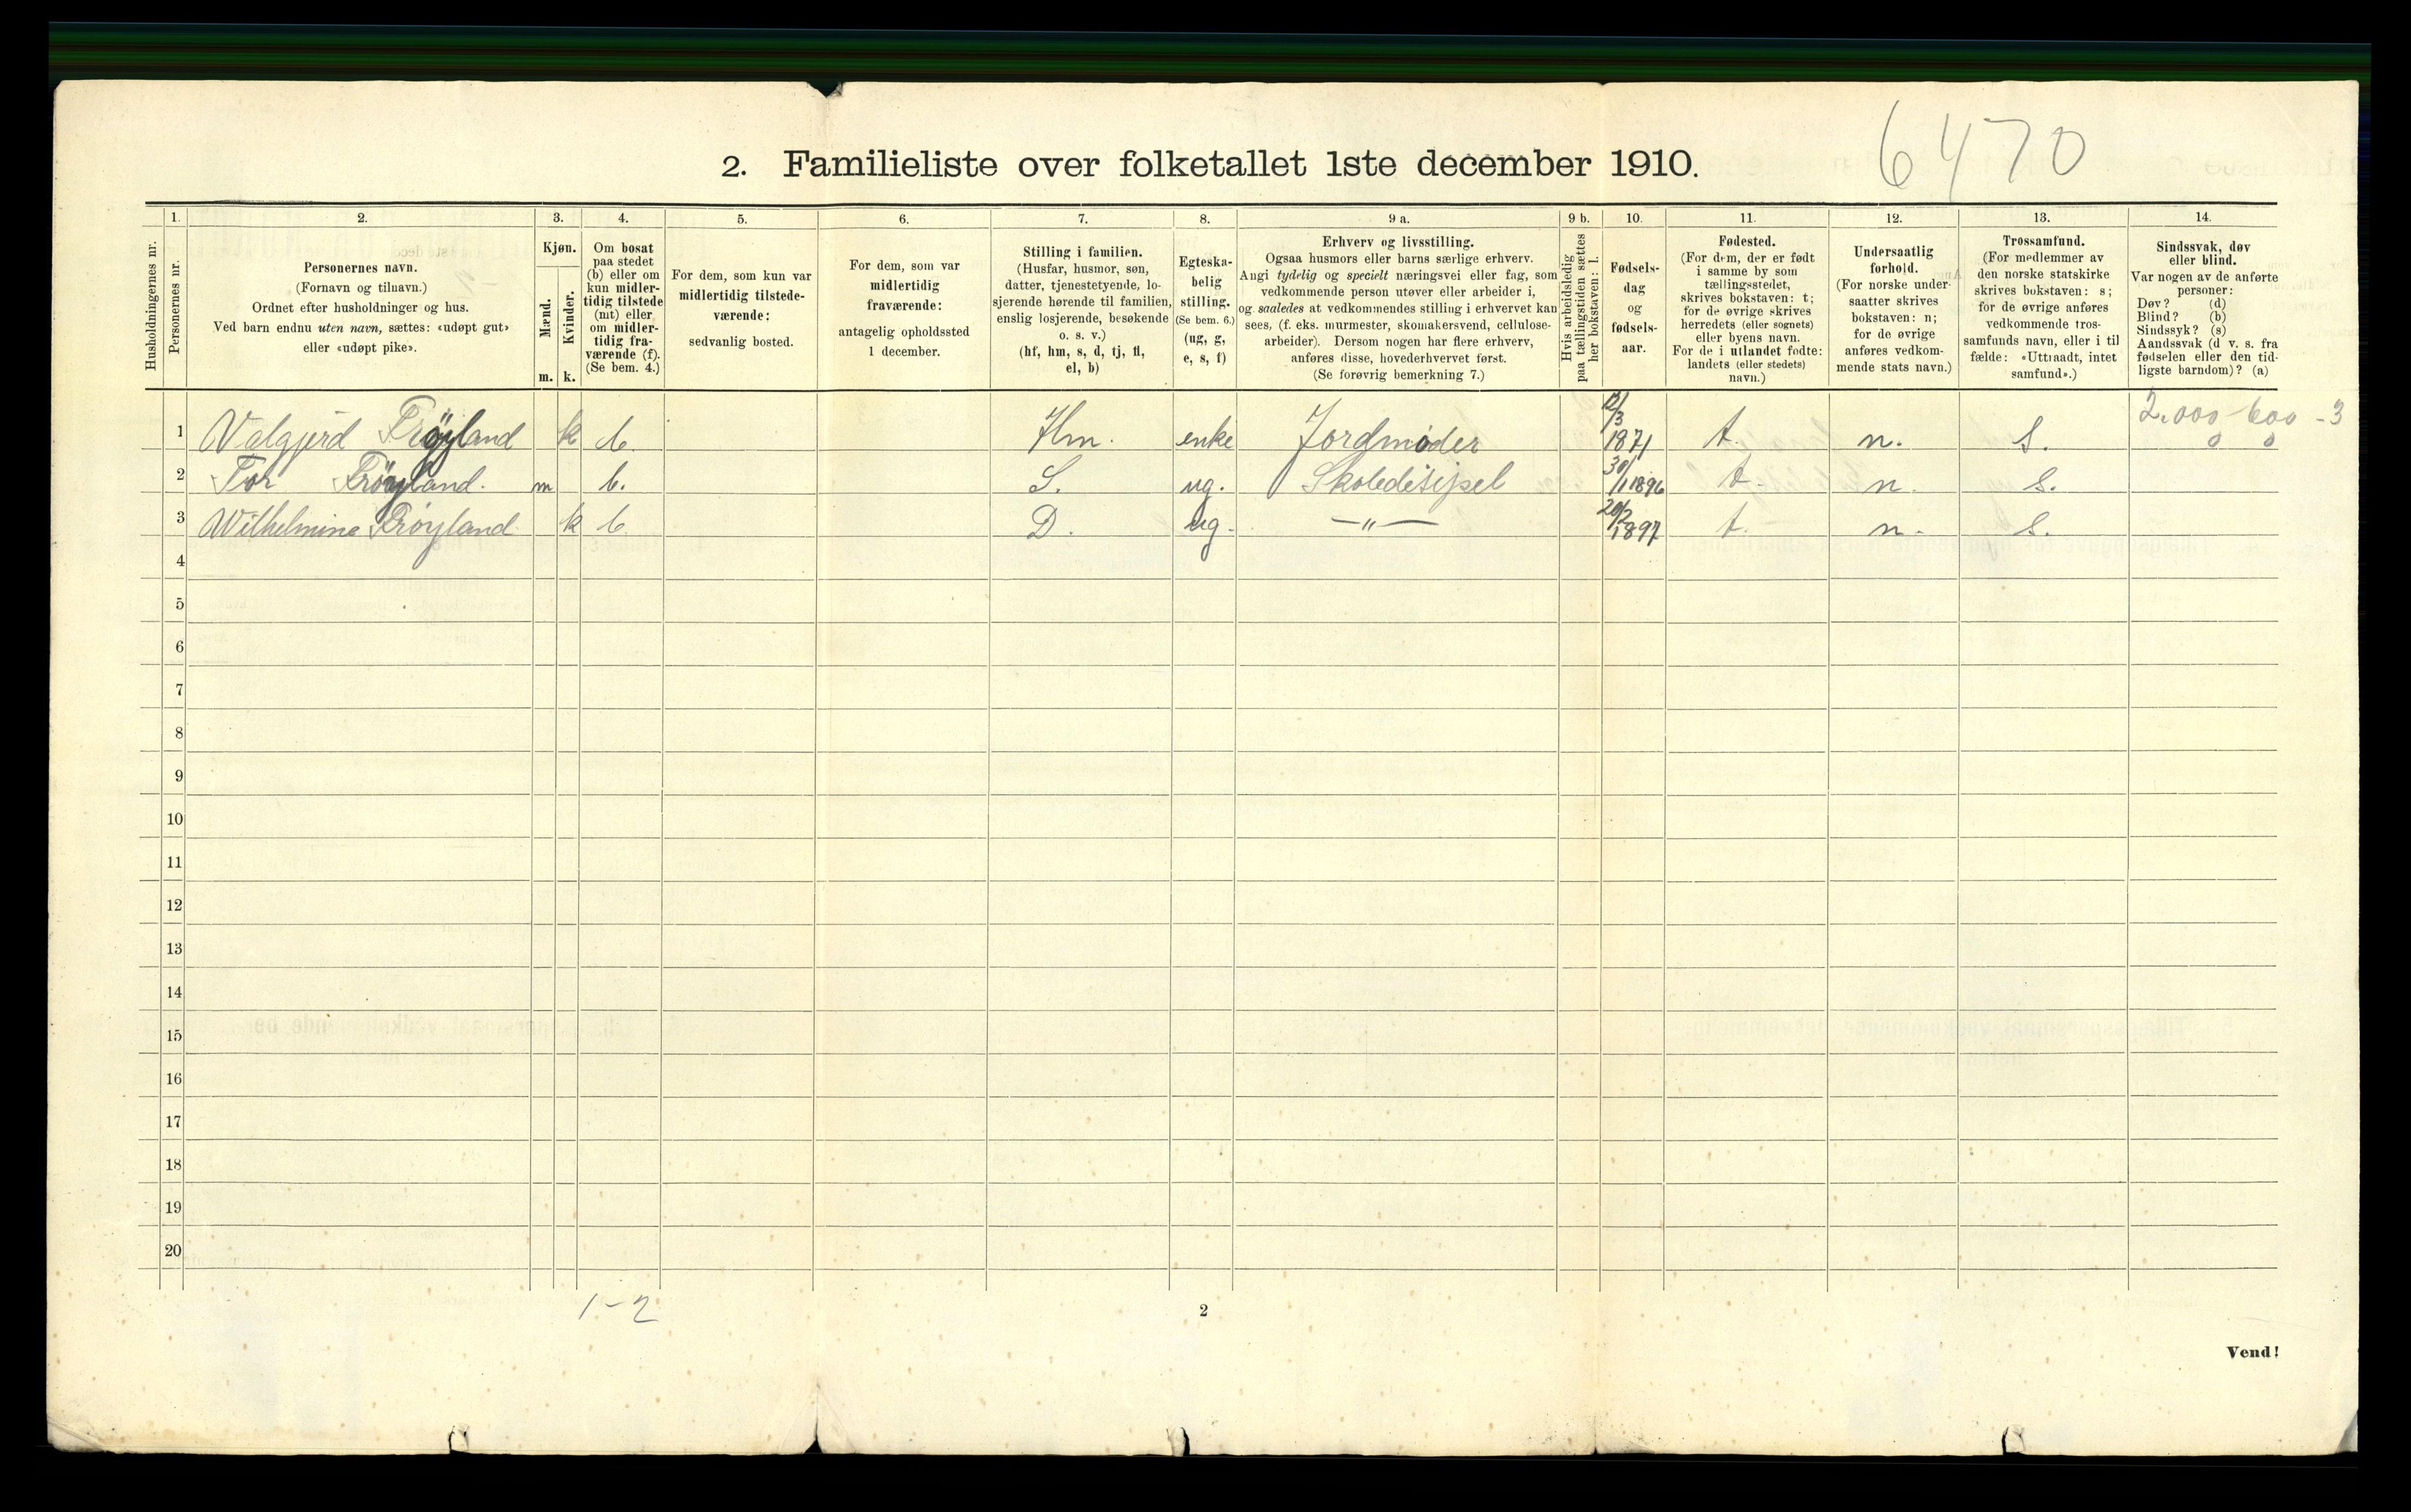 6470
2. Familieliste over folketallet 1ste december 1910.
Husholdningernes nr.
1.
Personernes nr.
2.
Personernes navn.
(Fornavn og tilnavn.)
Ordnet efter husholdninger og hus.
Ved barn endnu uten navn, sættes: «udøpt gut»
eller «udøpt pike».
3.
Kjøn.
Mænd.
Kvinder.
m. k.
4.
Om bosat
paa stedet
(b) eller om
kun midler-
tidig tilstede
(mt) eller
om midler-
tidig fra-
værende (f).
(Se bem. 4.)
5.
For dem, som kun var
midlertidig tilstede-
værende:
sedvanlig bosted.
6.
For dem, som var
midlertidig
fraværende:
antagelig opholdssted
1 december.
7.
Stilling i familien.
(Husfar, husmor, søn,
datter, tjenestetyende, lo-
sjerende hørende til familien,
enslig losjerende, besøkende
o. s. v.)
(hf, hm, s, d, tj, fl,
el, b)
8.
Egteska-
belig
stilling.
(Se bem. 6.)
(ug, g,
e, s, f)
9 a.
Erhverv og livsstilling.
Ogsaa husmors eller barns særlige erhverv.
Angi tydelig og specielt næringsvei eller fag, som
vedkommende person utøver eller arbeider i,
og saaledes at vedkommendes stilling i erhvervet kan
sees, (f. eks. murmester, skomakersvend, cellulose-
arbeider). Dersom nogen har flere erhverv,
anføres disse, hovederhvervet først.
(Se forøvrig bemerkning 7.)
9 b.
Hvis arbeidsledig
paa tællingstiden sættes
her bokstaven: l.
10.
Fødsels-
dag
og
fødsels-
aar.
11.
Fødested.
(For dem, der er født
i samme by som
tællingsstedet,
skrives bokstaven: t;
for de øvrige skrives
herredets (eller sognets)
eller byens navn.
For de i utlandet fødte:
landets (eller stedets)
navn.)
12.
Undersaatlig
forhold.
(For norske under-
saatter skrives
bokstaven: n;
for de øvrige
anføres vedkom-
mende stats navn.)
13.
Trossamfund.
(For medlemmer av
den norske statskirke
skrives bokstaven: s;
for de øvrige anføres
vedkommende tros-
samfunds navn, eller i til
fælde: «Uttraadt, intet
samfund».)
14.
Sindssvak, døv
eller blind.
Var nogen av de anførte
personer:
Døv? (d)
Blind? (b)
Sindssyk? (s)
Aandssvak (d v. s. fra
fødselen eller den tid-
ligste barndom)? (a)
2.000 - 600 - 3
0 0
1 Valgjerd Frøyland k b. Hm. enke Jordmoder 12/3 1871 t. n. S.
2 Tor Frøyland. m b. S. ug. Skoledisipel 30/1 1896 t. n. S.
3 Wilhelmine Frøyland k b D. ug. —"— 20/2 1897 t. n. S.
4
5
6
7
8
9
10
11
12
13
14
15
16
17
18
19
20
1-2
2
Vend!